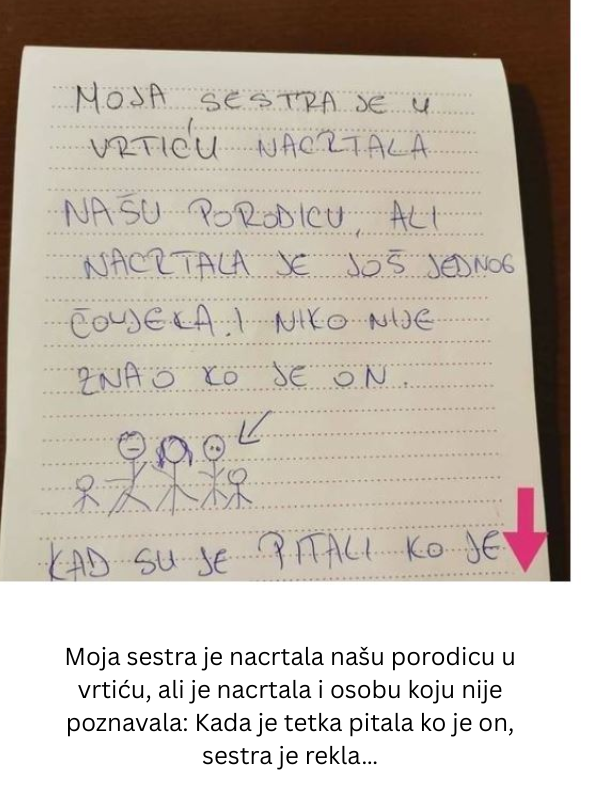 MOJA SESTRA JE U
VRTIĆU NACRTALA
NAŠU PORODICU, ALI
NACRTALA JE JOŠ JEDNOG
ČOVJEKA I NIKO NIJE
ZNAO KO JE ON.
KAD SU JE PITALI KO JE
Moja sestra je nacrtala našu porodicu u
vrtiću, ali je nacrtala i osobu koju nije
poznavala: Kada je tetka pitala ko je on,
sestra je rekla...